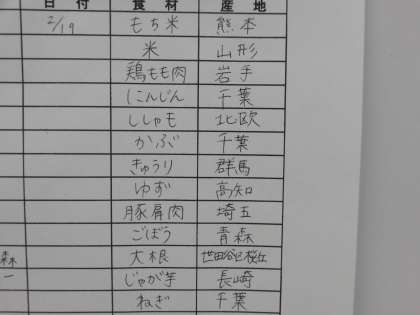 日付 食材 産地
2/19 もち米 熊本
米 山形
鶏もも肉 岩手
にんじん 千葉
ししゃも 北欧
かぶ 千葉
きゅうり 群馬
ゆず 高知
豚肩肉 埼玉
ごぼう 青森
森 大根 世田谷区桜丘
ー じゃが芋 長崎
ねぎ 千葉